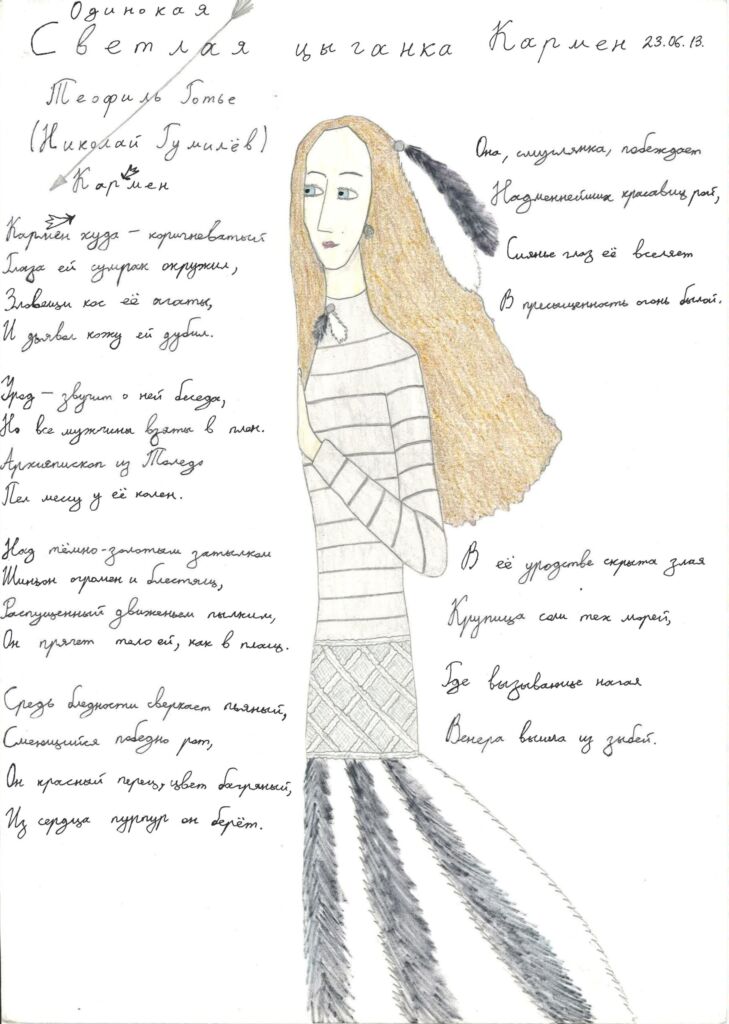 Одинокая
Светлая цыганка Кармен 23.06.13.
Теофиль Готье
(Николай Гумилёв)
Кармен
Кармен худа – коричневатый
Глаза ей сумрак окружил,
Зловещи кос её агаты,
И дьявол кожу ей дубил.
Урод – звучит о ней беседа,
Но все мужчины взяты в плен.
Архиепископ из Толедо
Пел мессу у её колен.
Над тёмно-золотым затылком
Шиньон огромен и блестящ,
Распущенный движеньем пылким,
Он прячет тело ей, как в плащ.
Средь бледности сверкает пьяный,
Смеющийся победно рот,
Он красный перец, цвет багряный,
Из сердца пурпур он берёт.
Она, смуглянка, побеждает
Надменнейших красавиц рой,
Сиянье глаз её вселяет
В пресыщенность огонь былой.
В её уродстве скрыта злая
Крупица соли тех морей,
Где вызывающе нагая
Венера вышла из зыбей.